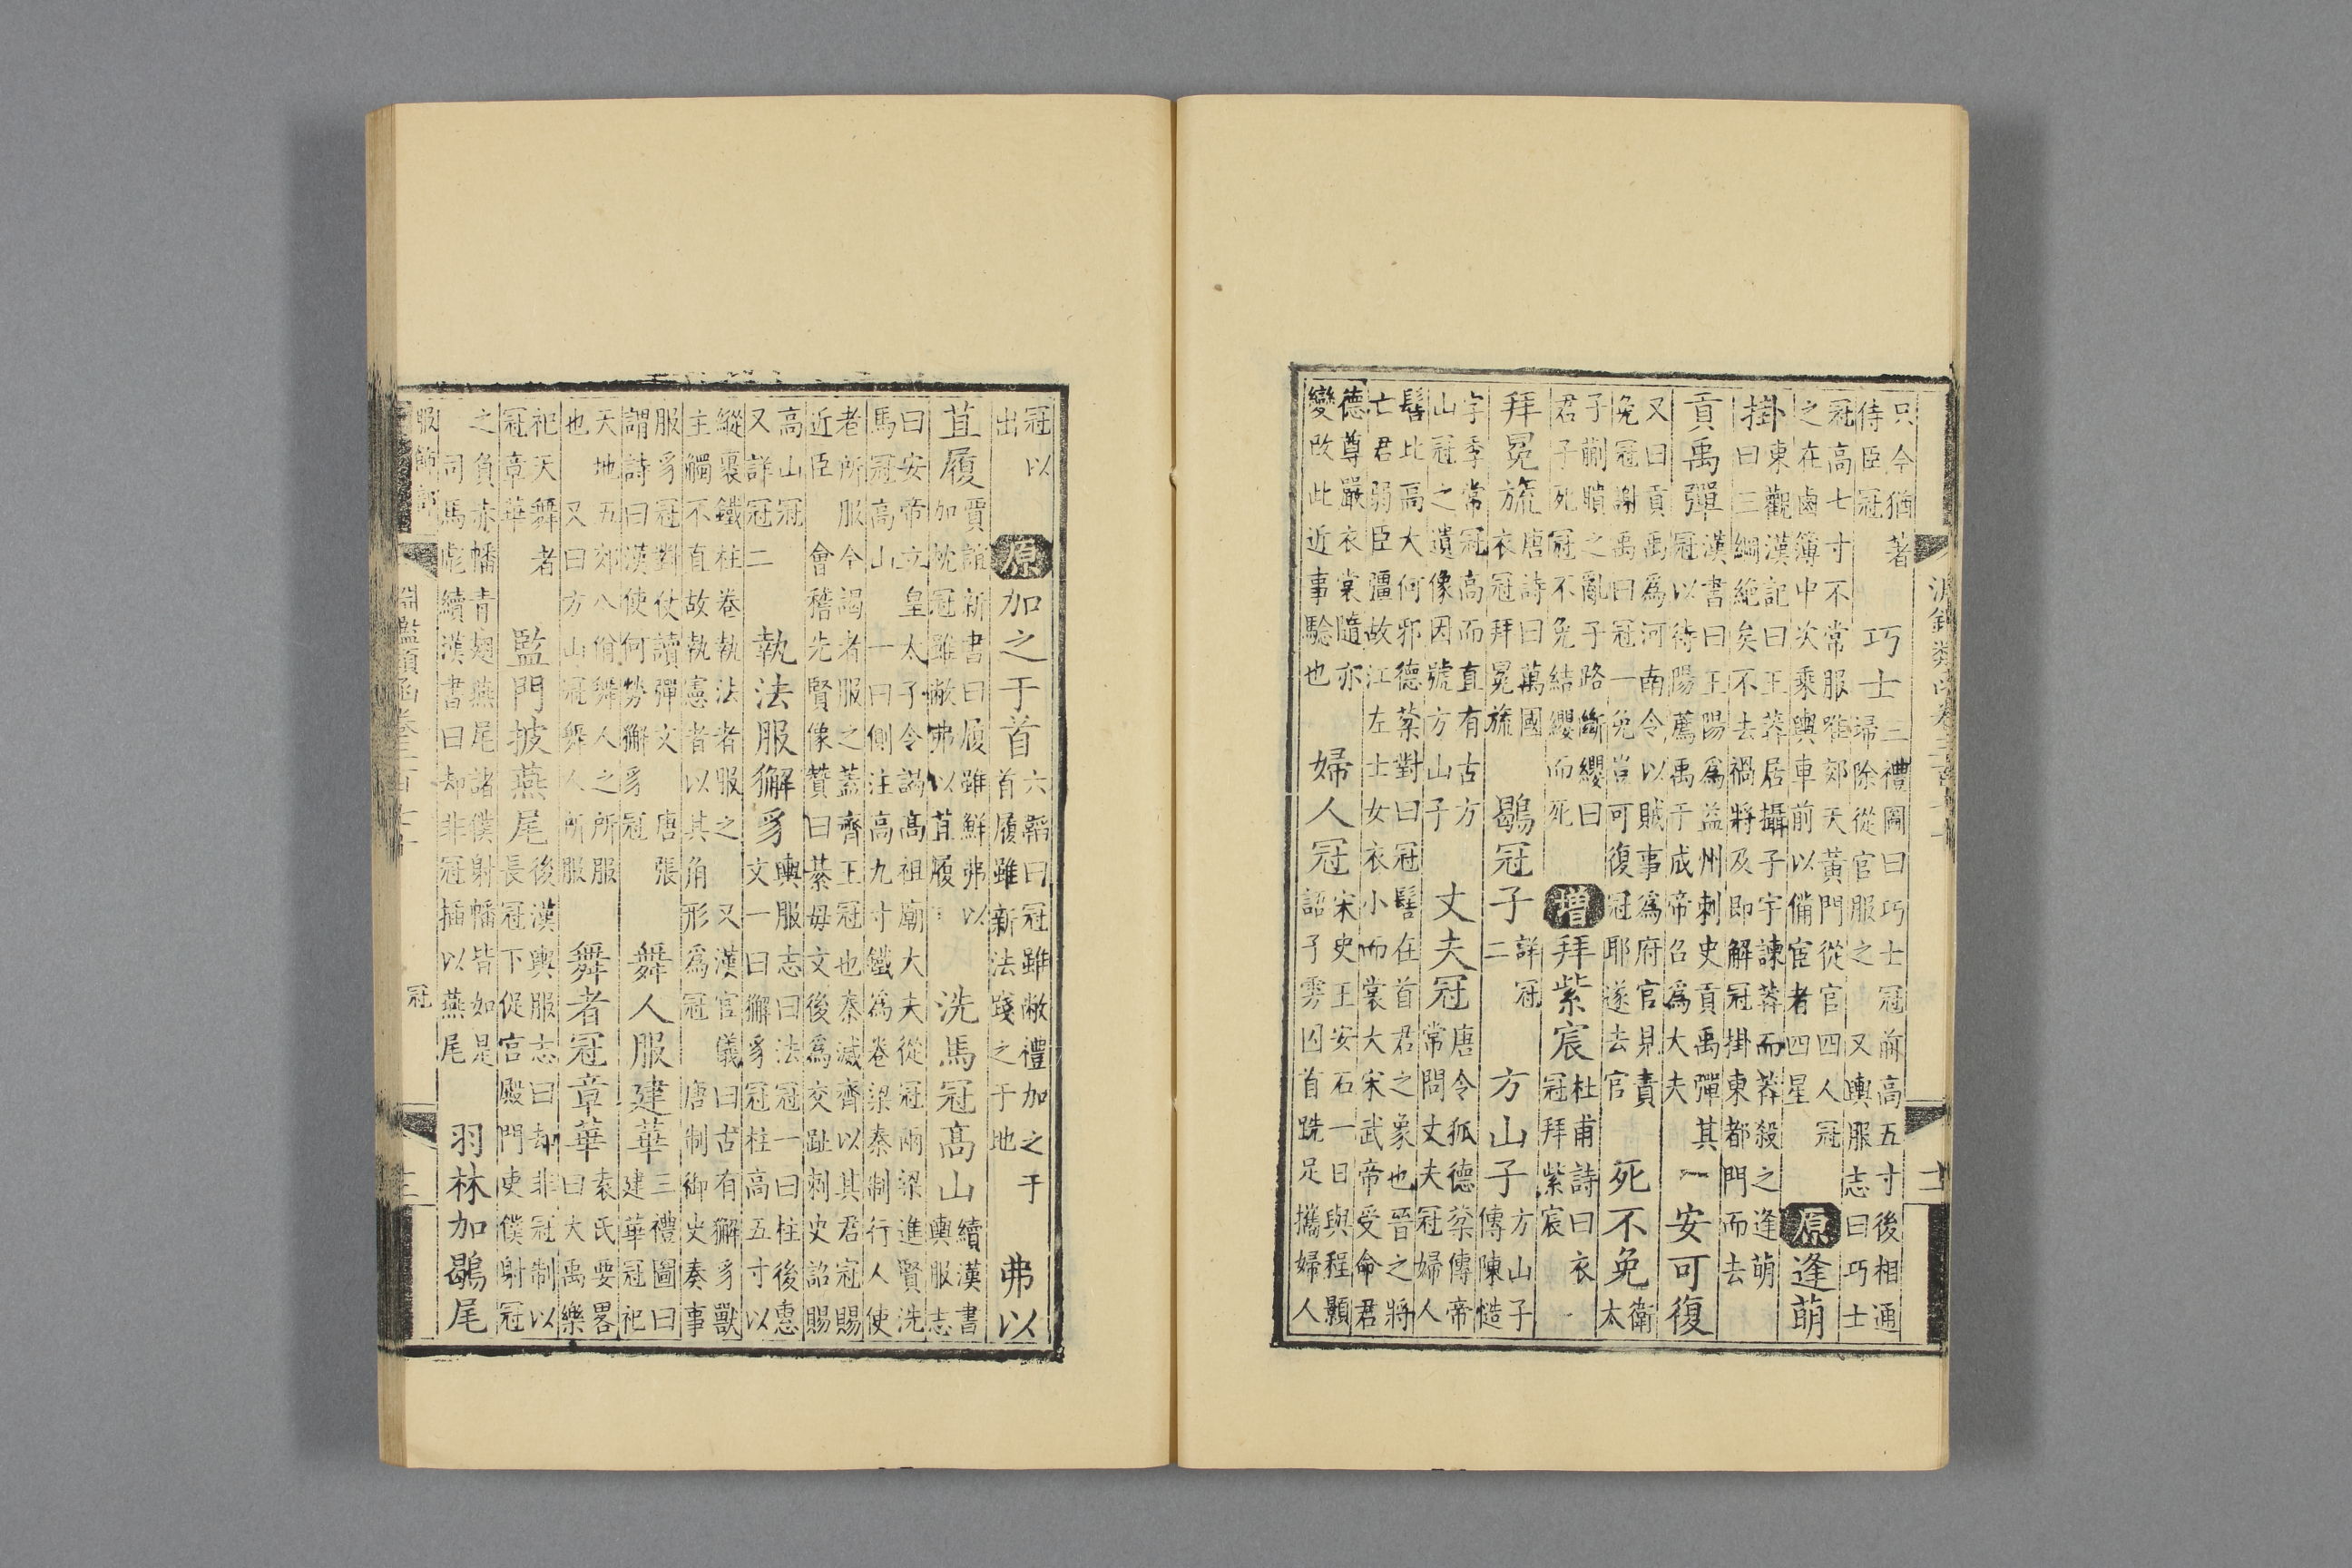 淵鑑類函卷三百七十
只今猶著
侍臣冠
巧士
三禮圖曰巧士冠前高五寸後相通
掃除從官服之　又輿服志曰巧士
冠高七寸不常服唯郊天黃門從官四人冠
之在鹵簿中次乘輿車前以備宦者四星
原逢萌
掛
東觀漢記曰王莽居攝子宇諫莽而莽殺之逢萌
曰三綱絕矣不去禍將及即解冠掛東都門而去
貢禹彈
漢書曰王陽為益州刺史貢禹彈其
冠以待陽薦禹于成帝召為大夫
一安可復
又曰貢禹為河南令以賊事為府官見責
免冠謝禹曰冠一免豈可復冠耶遂去官
死不免
衛
太
子蒯聵之亂子路斷纓曰
君子死冠不免結纓而死
增拜紫宸
杜甫詩曰衣
冠拜紫宸
拜冕旒
唐詩曰萬國
衣冠拜冕旒
鶡冠子
詳冠
二
方山子
方山子
傳陳慥
字季常冠高而直有古方
山冠之遺像因號方山子
丈夫冠
唐令狐德棻傳帝
常問丈夫冠婦人
髻比高大何邪德棻對曰冠髻在首君之象也晉之將
亡君弱臣彊故江左士女衣小而裳大宋武帝受命君
德尊嚴衣裳隨亦
變改此近事驗也
婦人冠
宋史王安石一日與程顥
語子雱囚首跣足攜婦人
冠以
出
原加之于首
六韜曰冠雖敝禮加之于
首履雖新法踐之于地
弗以
苴履
賈誼新書曰履雖鮮弗以
加枕冠雖敝弗以苴履
洗馬冠高山
續漢書
輿服志
曰安帝立皇太子令謁高祖廟大夫從冠兩梁進賢洗
馬冠高山　一曰側注高九寸鐵為卷梁秦制行人使
老所服今謁者服之蓋齊王冠也秦滅齊以其君冠賜
近臣　會稽先賢像贊曰綦毋文後為交趾刺史詔賜
高山冠
又詳冠二
執法服獬豸
輿服志曰法冠一曰柱後惠
文一曰獬豸冠柱高五寸以
縱裏鐵柱卷執法者服之　又漢官儀曰古有獬豸獸
主觸不直故執憲者以其角形為冠　唐制御史奏事
服豸冠對仗讀彈文　唐張
謂詩曰漢使何勞獬豸冠
舞人服建華
三禮圖曰
建華冠祀
天地五郊八佾舞人之所服
也　又曰方山冠舞人所服
舞者冠章華
袁氏要畧
曰大禹樂
祀天舞者
冠章華
監門披燕尾
後漢輿服志曰却非冠制以
長冠下促宮殿門吏僕射冠
之負赤幡青翅燕尾諸僕射幡皆如是
司馬彪續漢書曰却非冠插以燕尾
羽林加鶡尾
服飾部
淵鑑類函卷三百七十
冠